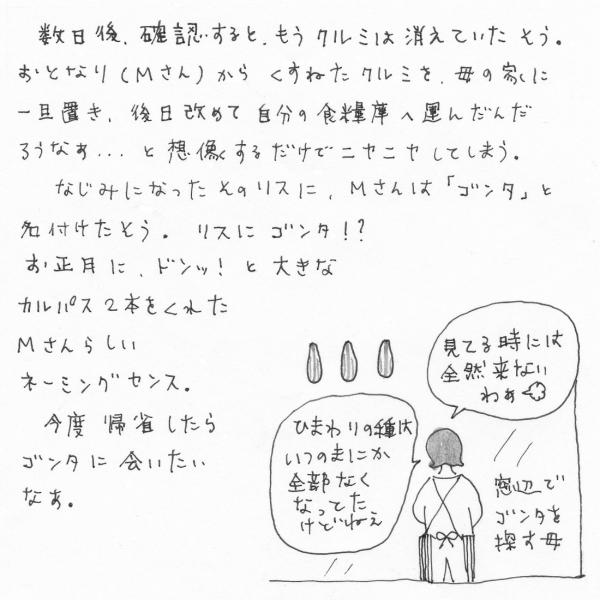 数日後、確認すると、もうクルミは消えていたそう。
おとなり(Mさん)からくすねたクルミを、母の家に
一旦置き、後日改めて自分の食糧庫へ運んだんだ
ろうなぁ...と想像するだけでニヤニヤしてしまう。
なじみになったそのリスに、Mさんは「ゴンタ」と
名付けたそう。リスにゴンタ!?
お正月に、ドンッ!と大きな
カルパス2本をくれた
Mさんらしい
ネーミングセンス。
今度帰省したら
ゴンタに会いたい
なぁ。
見てる時には
全然来ない
わぁ
ひまわりの種は
いつのまにか
全部なく
なってた
けどねぇ
窓辺で
ゴンタを
探す母